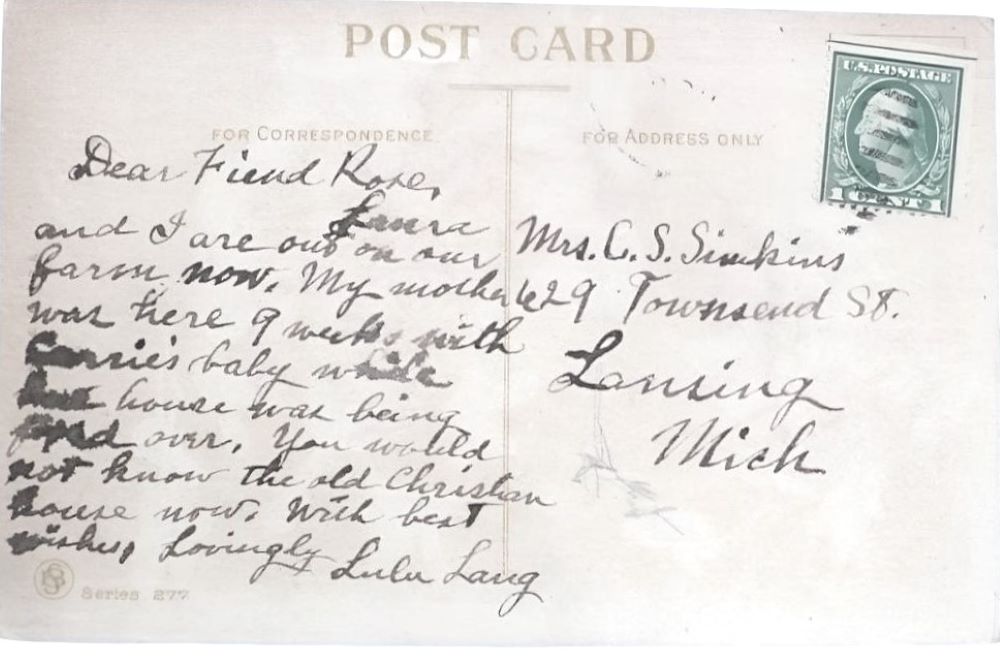 POST CARD
FOR CORRESPONDENCE
FOR ADDRESS ONLY
U.S. POSTAGE
1 CENT
Dear Fiend Rose,
Laura
and I are out on our
farm now. My mother
was here 9 weeks with
Carrie's baby while
house was being
over. You would
not know the old Christian
house now. With best
wishes, Lovingly
Lulu Lang
Mrs. C. S. Simkins
629 Townsend St.
Lansing
Mich
Series 277